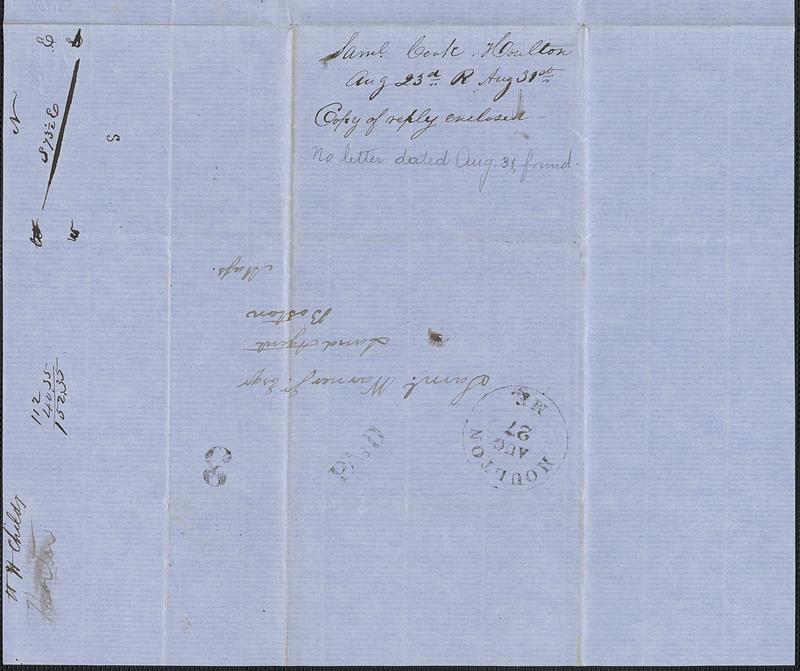 Saml. Cook. Houlton
Aug 23d R. Aug 31st
Copy of reply enclosed
No letter dated Aug. 31, found.
Saml. Warner Jr. Esqr
Land Agent
Boston
Mass.
HOULTON
AUG
27
ME
PAID
3
N
S 73½ E
S
112
40.35
152.35
H Childs